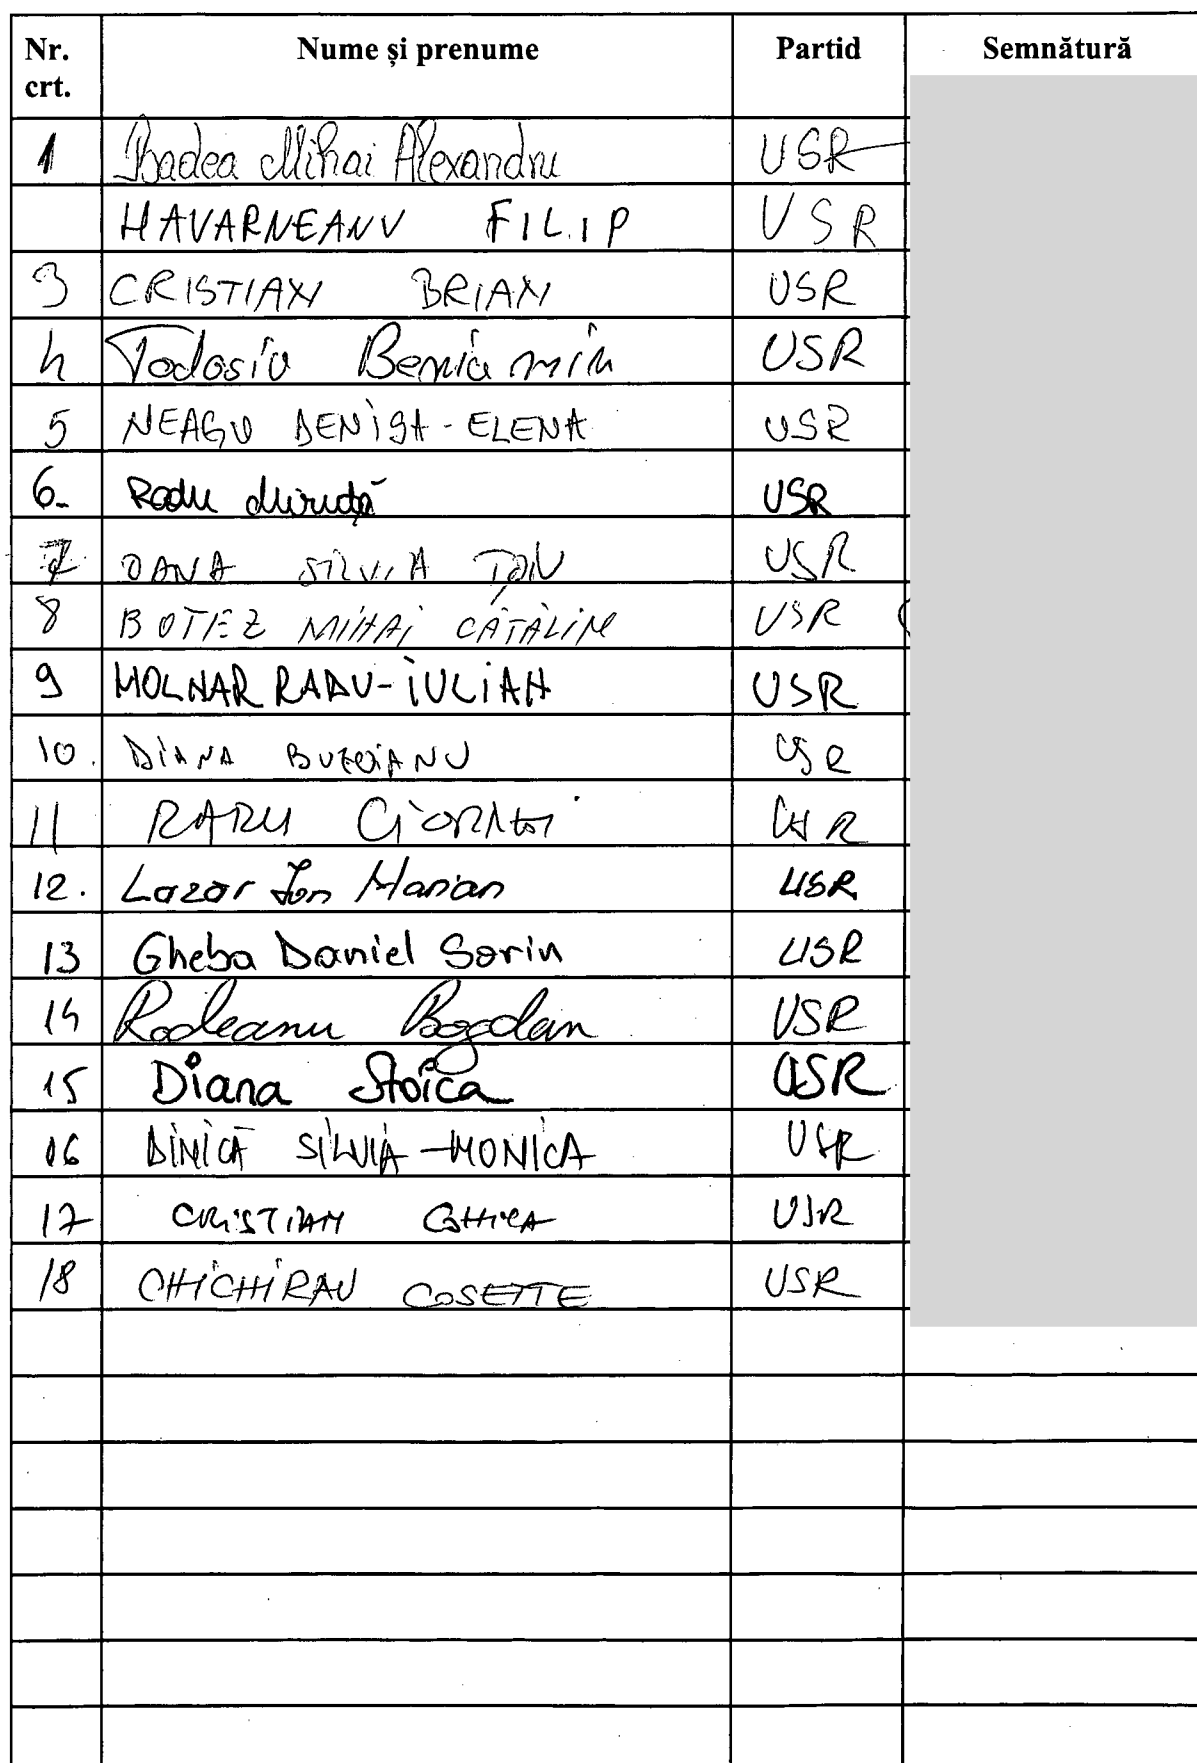 Nr. crt. Nume și prenume Partid Semnătură
1 Badea Mihai Alexandru USR
HAVARNEANU FILIP USR
3 CRISTIAN BRIAN USR
4 Todosiu Beniamin USR
5 NEAGU DENISA-ELENA USR
6. Radu Miruță USR
7 OANA SILVIA ȚOIU USR
8 BOTEZ MIHAI CĂTĂLIN USR
9 MOLNAR RADU-IULIAN USR
10. DIANA BUZOIANU USR
11 RADU CIORNEI USR
12. Lazar Ion Marian USR
13 Gheba Daniel Sorin USR
14 Rodeanu Bogdan USR
15 Diana Stoica USR
16 DINICĂ SILVIA-MONICA USR
17 CRISTIAN GHICA USR
18 CHICHIRAU COSETTE USR